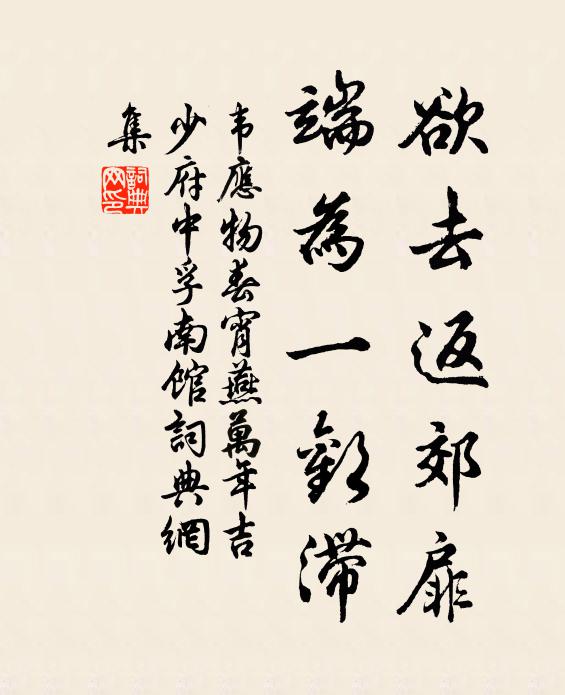 欲去返郊扉
端為一歡滯
韦應物春宵燕萬年吉
少府中孚南館詞典網
集
詞典
网印